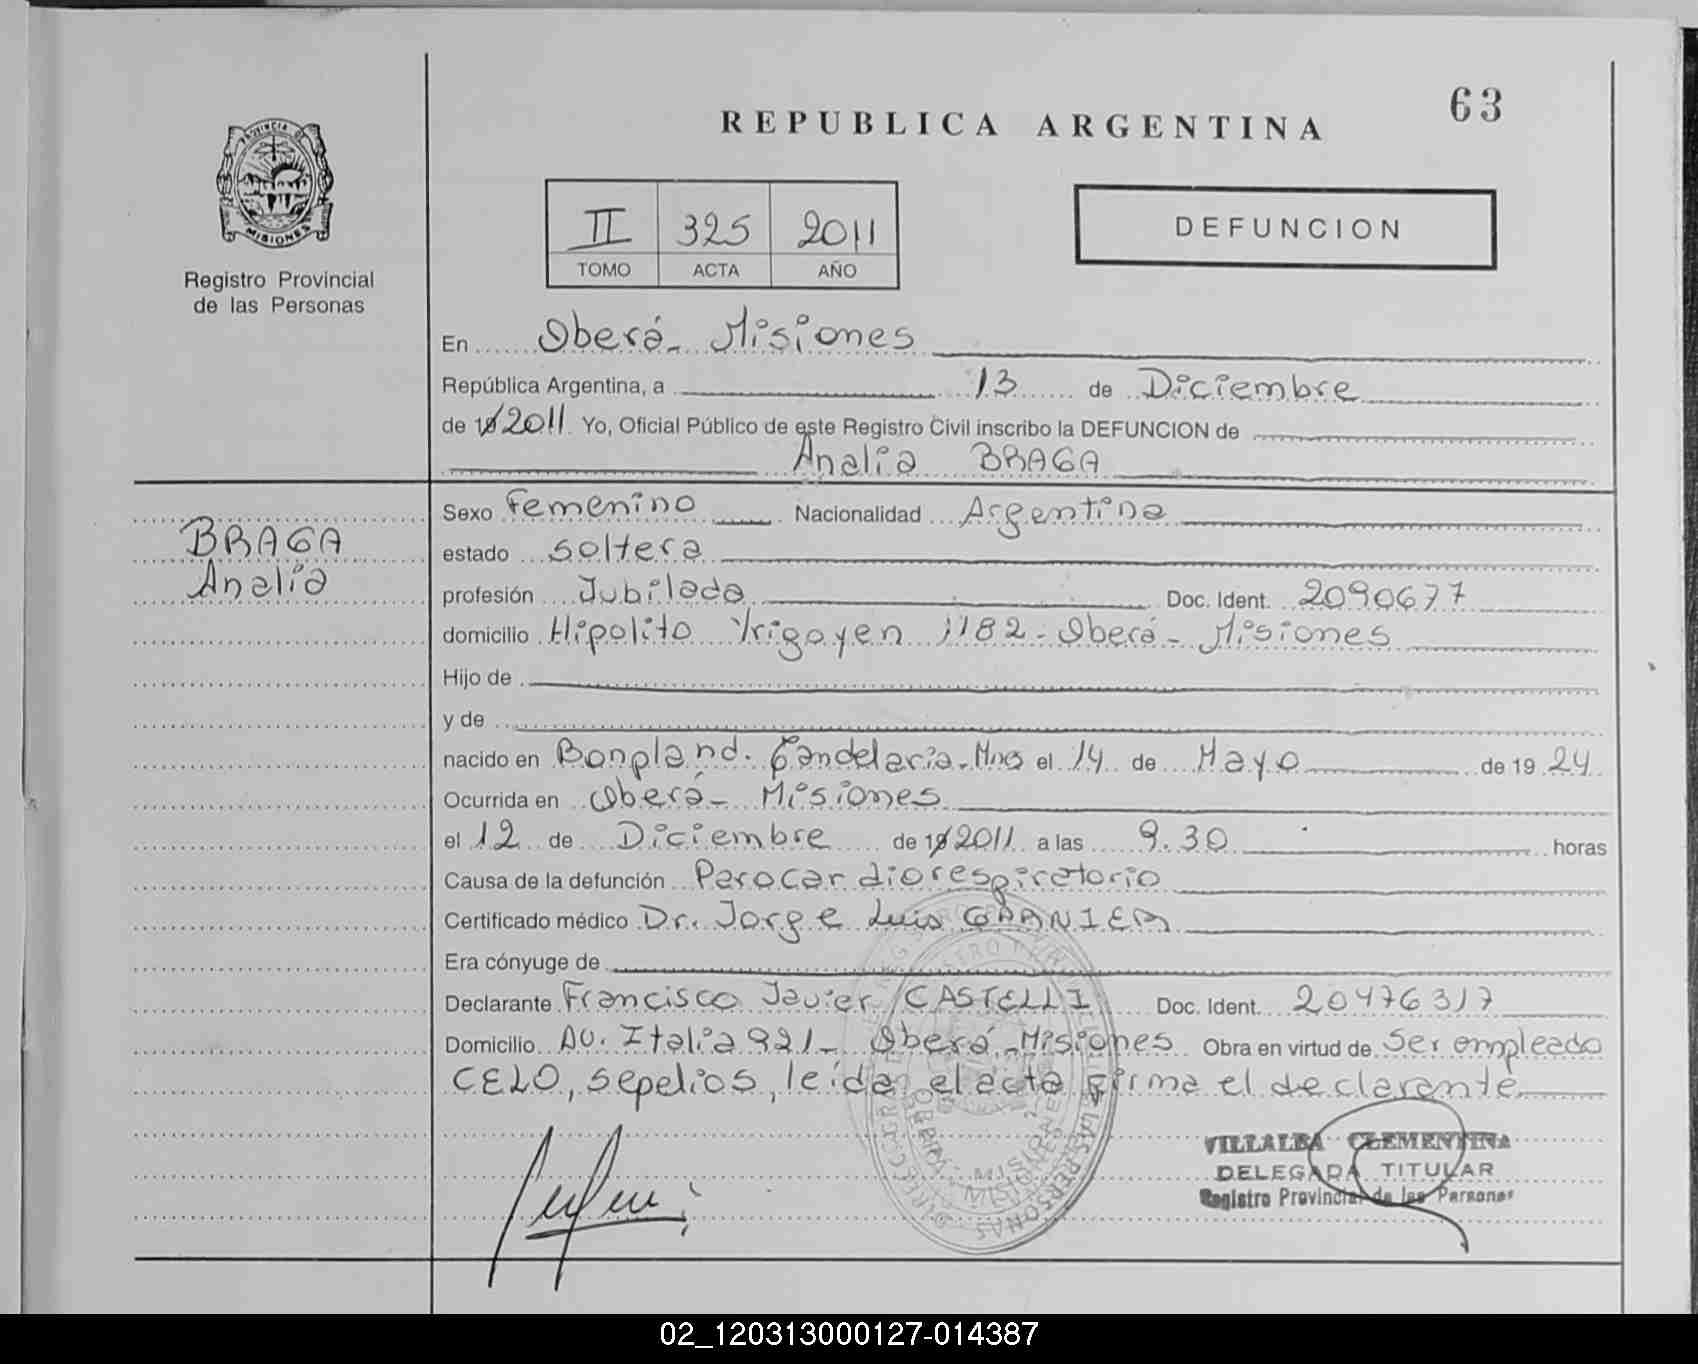 63
REPUBLICA ARGENTINA
PROVINCIA DE
MISIONES
Registro Provincial
de las Personas
II 325 2011
TOMO ACTA AÑO
DEFUNCION
En Oberá - Misiones
República Argentina, a 13 de Diciembre
de 19 2011 Yo, Oficial Público de este Registro Civil inscribo la DEFUNCION de
Analia BRAGA
BRAGA
Analia
Sexo Femenino Nacionalidad Argentina
estado soltera
profesión Jubilada Doc. Ident. 2090677
domicilio Hipolito Yrigoyen 1182 - Oberá - Misiones
Hijo de
y de
nacido en Bonpland. Candelaria. Mnes el 14 de Mayo de 19 24
Ocurrida en Oberá - Misiones
el 12 de Diciembre de 19 2011 a las 9.30 horas
Causa de la defunción Parocardiorespiratorio
Certificado médico Dr. Jorge Luis GARNIER
Era cónyuge de
Declarante Francisco Javier CASTELLI Doc. Ident. 20476317
Domicilio Av. Italia 921 - Oberá - Misiones Obra en virtud de Ser empleado
CELO, sepelios, leida el acta firma el declarante
VILLALBA CLEMENTINA
DELEGADA TITULAR
Registro Provincial de las Personas
02_120313000127-014387